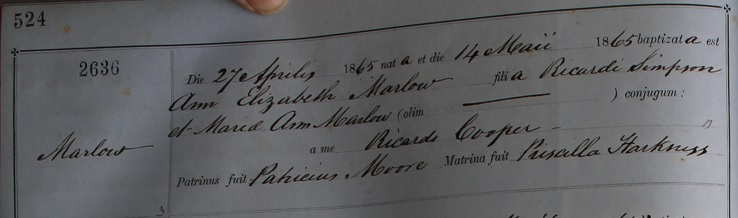 524
2636
Die 27 Aprilis 1865 nata et die 14 Maii 1865 baptizata est
Ann Elizabeth Marlow filia Ricardi Simpson
et Mariæ Ann Marlow (olim ) conjugum:
Marlow
a me Ricardo Cooper
Patrinus fuit Patricius Moore Matrina fuit Priscilla Harkness
3